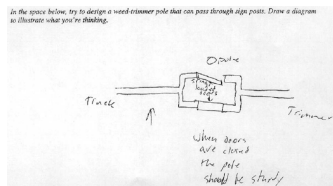 In the space below, try to design a weed-trimmer pole that can pass through sign posts. Draw a diagram
to illustrate what you're thinking.
Truck
Trimmer
when doors
are closed
the pole
should be sturdy